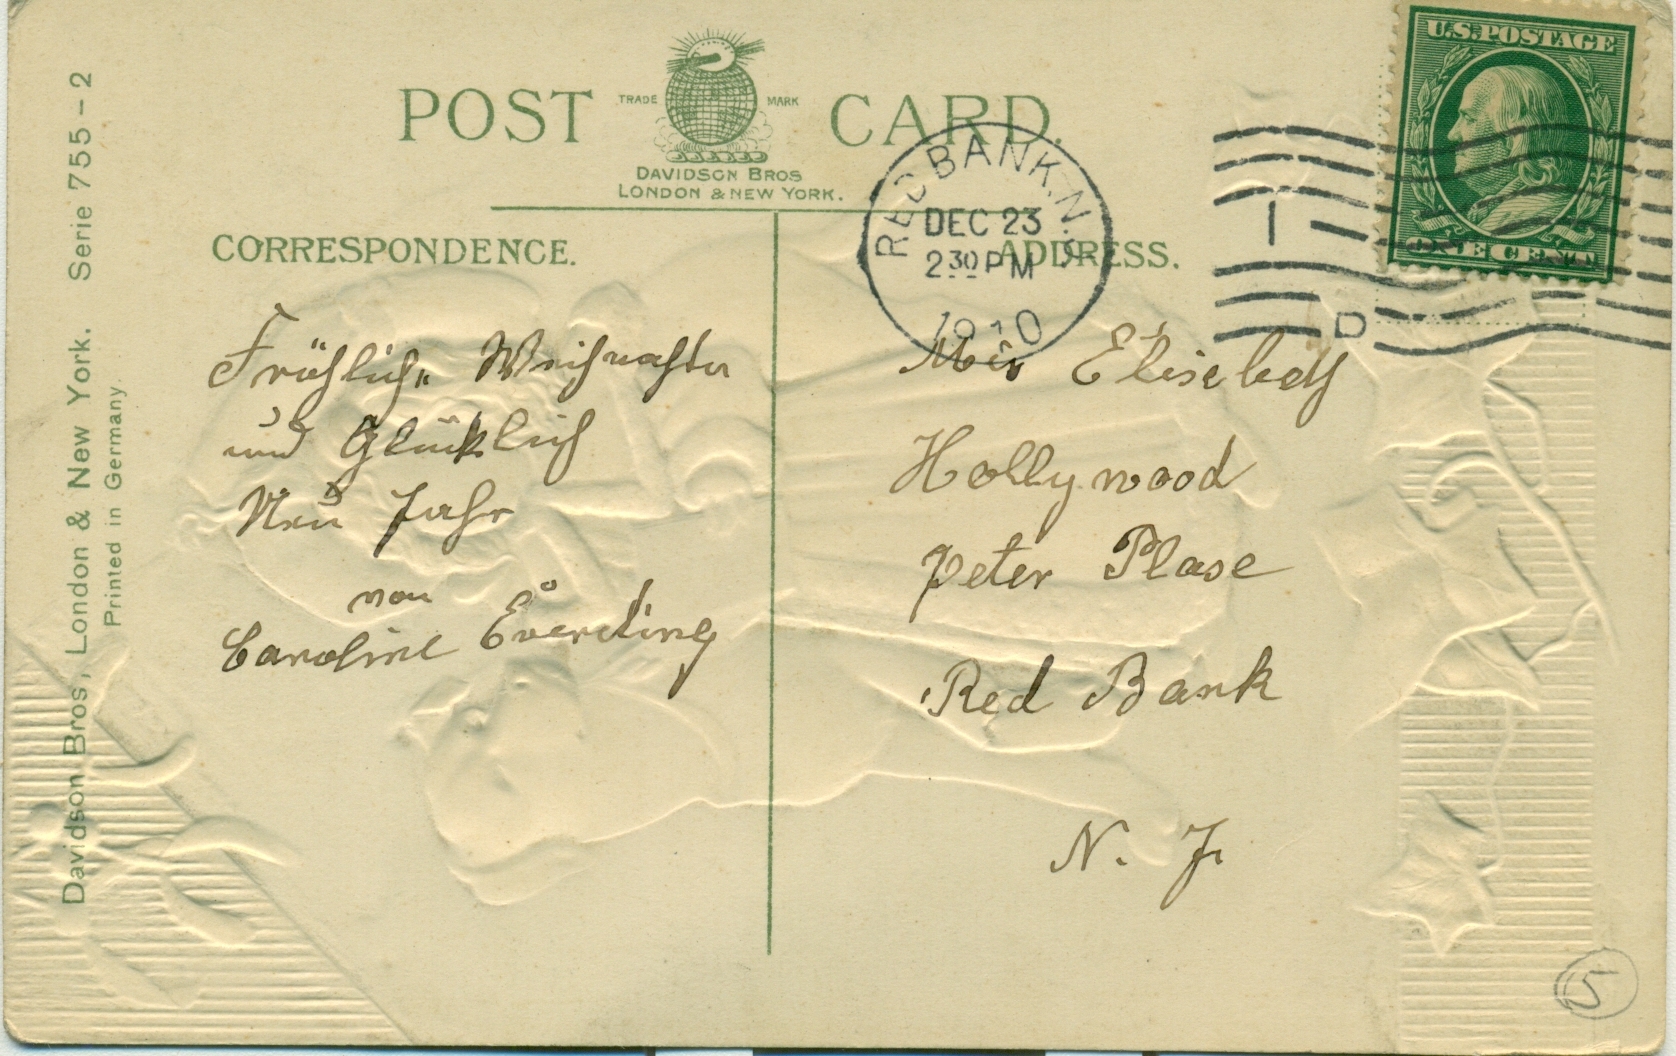 POST CARD.
TRADE MARK
DAVIDSON BROS
LONDON & NEW YORK.
CORRESPONDENCE.
ADDRESS.
RED BANK, N.J.
DEC 23
2 30 PM
1910
U.S. POSTAGE
ONE CENT
I
D
Fröhliche Weihnachten
und Glücklich
Neu Jahr
von
Caroline Everding
Mis Elisebeth
Hollywood
Peter Plase
Red Bank
N. J.
Davidson Bros, London & New York. Serie 755 – 2
Printed in Germany.
5